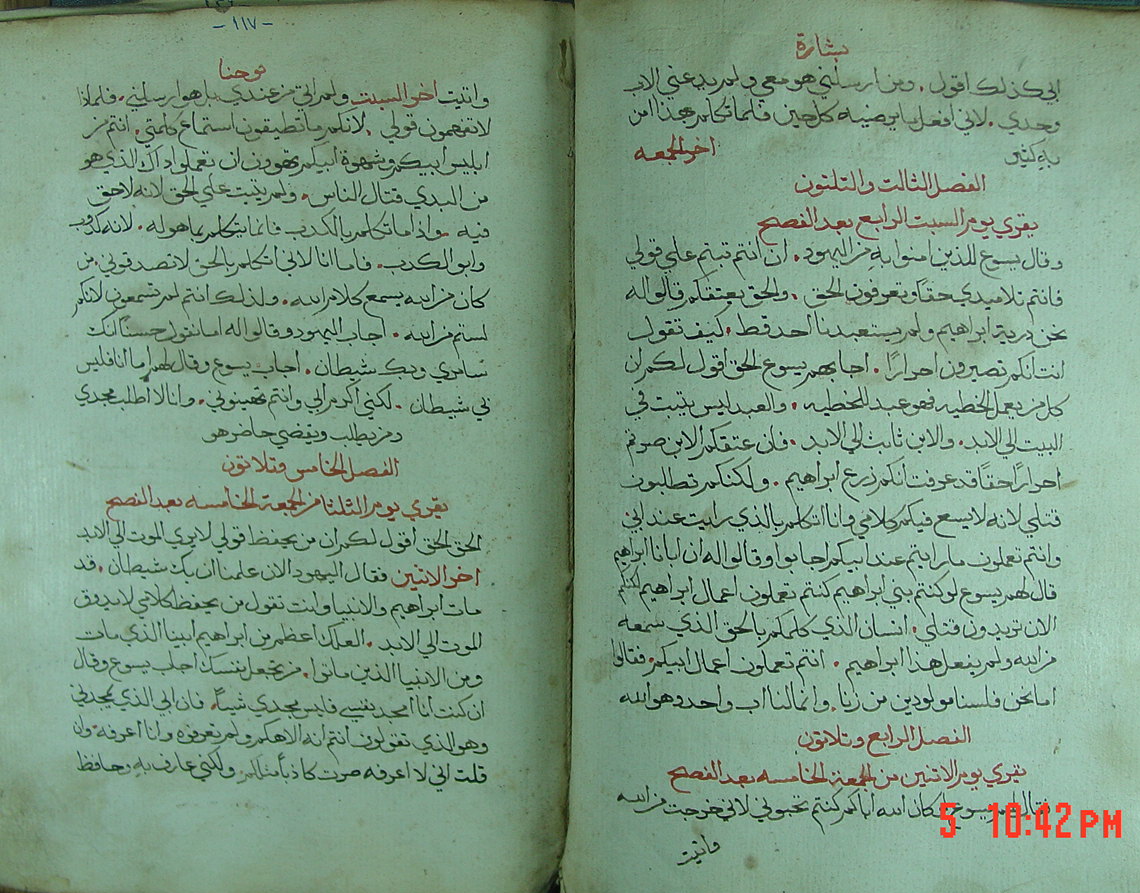 بشارة
اني كذلك اقول . ومن ارسلني هو معي ولم يدعني الاب
وحدي . لاني افعل ما يرضيه كل حين فلما تكلم بهذا امن
به كثير اخر الجمعه
الفصل الثالث والثلثون
يقري يوم السبت الرابع بعد الفصح
وقال يسوع للذين امنوا به من اليهود . ان انتم ثبتم علي قولي
فانتم تلاميدي حقا وتعرفون الحق . والحق يعتقكم قالوا له
نحن درية ابراهيم ولم يستعبدنا احد قط . كيف تقول
انت انكم تصيرون احرارًا . اجابهم يسوع الحق اقول لكم ان
كل من يعمل الخطيه فهو عبد للخطيه . والعبد ليس يثبت في
البيت الي الابد . والابن ثابت الي الابد . فان عتقكم الابن صرتم
احرارًا حقًا قد عرفت انكم زرع ابراهيم . ولكنكم تطلبون
قتلي لانه لا يسع فيكم كلامي وانا اتكلم بالذي رايت عند ابي
وانتم تعملون ما رايتم عند ابيكم اجابوا وقالوا له ان ابانا ابراهيم
قال لهم يسوع لو كنتم بني ابراهيم كنتم تعملون اعمال ابراهيم لكنكم
الان تريدون قتلي . انسان الذي كلمكم بالحق الذي سمعه
من الله ولم يفعل هذا ابراهيم . انتم تعملون اعمال ابيكم . فقالوا
اما نحن فلسنا مولودين من زنا . وانما لنا اب واحد وهو الله
الفصل الرابع وتلاتون
يقري يوم الاتنين من الجمعة الخامسه بعد الفصح
فقال لهم يسوع لو كان الله اباكم كنتم تحبوني لاني خرجت من الله
واتيت
5 10:42 PM
- ١١٧ -
يوحنا
واتيت اخر السبت ولم اتي من عندي بل هو ارسلني . فلماذا
لا تفهمون قولي . لانكم ما تطيقون استماع كلمتي . انتم من
ابليس ابيكم وشهوة ابيكم تهوون ان تعملوا داك الذي هو
من البدي قتال الناس . ولم يثبت علي الحق لانه لا حق
فيه . واذا ما تكلم بالكدب فانما يتكلم بما هو له . لانه كدوب
وابو الكدب . فاما انا لاني اتكلم بالحق لا تصدقوني . من
كان من الله يسمع كلام الله . ولذلك انتم لم تسمعون لانكم
لستم من الله . اجاب اليهود وقالوا له اما نقول حسنًا انك
سامري وبك شيطان . اجاب يسوع وقال لهم اما انا فليس
لي شيطان . لكني اكرم ابي وانتم تهينوني . وانا لا اطلب مجدي
من يطلب ويقضي حاضر هو
الفصل الخامس وتلاتون
يقري يوم التلتا من الجمعة الخامسه بعد الفصح
الحق الحق اقول لكم ان من يحفظ قولي لا يري الموت الي الابد
اخر الاتنين فقال اليهود الان علمنا ان بك شيطان . قد
مات ابراهيم والانبيا وانت تقول من يحفظ كلامي لا يدوق
الموت الي الابد . العلك اعظم من ابراهيم ابينا الذي مات
ومن الانبيا الذين ماتوا . من تجعل نفسك اجاب يسوع وقال
ان كنت انا امجد نفسي فليس مجدي شيئًا . فان ابي الذي يمجدني
وهو الذي تقولون انتم انه الاهكم ولم تعرفوه وانا اعرفه . وان
قلت اني لا اعرفه صرت كاذبًا مثلكم . ولكني عارف به وحافظ